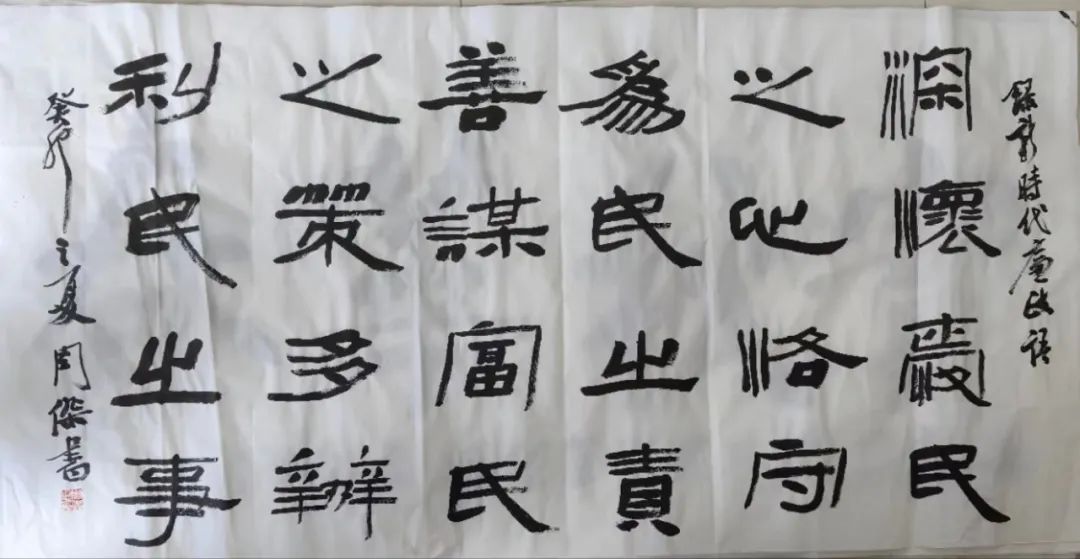 錄新時代廉政語
深懷愛民
之心恪守
為民之責
善謀富民
之策多辦
利民之事
癸卯之夏周傑書